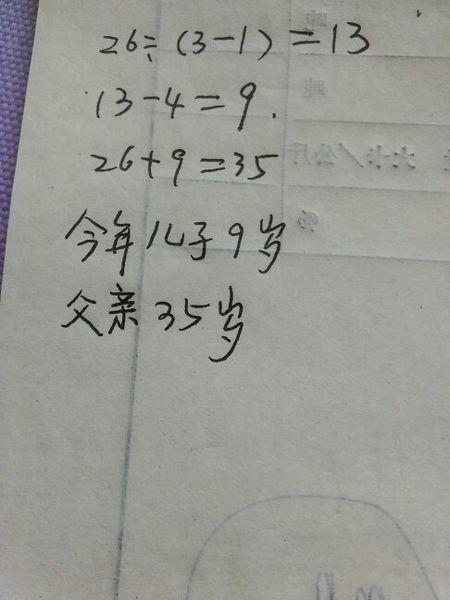 26÷(3-1)=13
13-4=9.
26+9=35
今年儿子9岁
父亲35岁